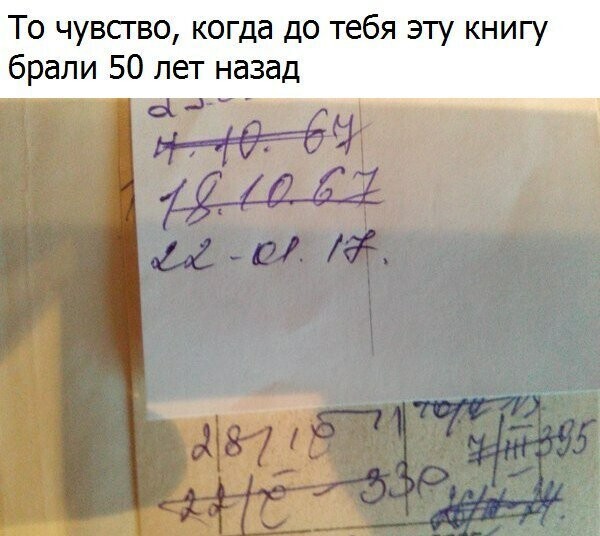 То чувство, когда до тебя эту книгу
брали 50 лет назад
4.10.67
18.10.67
22-01.17.
28/10
7/III 395
22/ 330